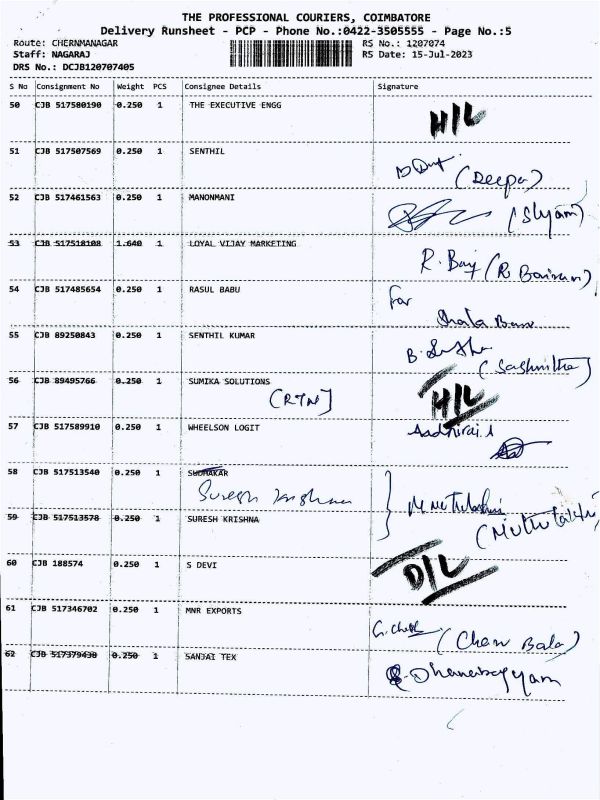 THE PROFESSIONAL COURIERS, COIMBATORE
Delivery Runsheet - PCP - Phone No.:0422-3505555 - Page No.:5
Route: CHERNMANAGAR RS No.: 1207074
Staff: NAGARAJ RS Date: 15-Jul-2023
DRS No.: DCJB120707405
S No Consignment No Weight PCS Consignee Details Signature
50 CJB 517580190 0.250 1 THE EXECUTIVE ENGG H/L
51 CJB 517507569 0.250 1 SENTHIL
(Deepa)
52 CJB 517461563 0.250 1 MANONMANI
(Shyam)
53 CJB 517518108 1.640 1 LOYAL VIJAY MARKETING
R. Baij (R
54 CJB 517485654 0.250 1 RASUL BABU For
55 CJB 89250843 0.250 1 SENTHIL KUMAR
(Sashmitha)
56 CJB 89495766 0.250 1 SUMIKA SOLUTIONS H/L
(RTN]
57 CJB 517589910 0.250 1 WHEELSON LOGIT Aadhiraj.A
58 CJB 517513540 0.250 1 SUDHAKAR
Suresh Krishna
59 CJB 517513578 0.250 1 SURESH KRISHNA
60 CJB 188574 0.250 1 S DEVI D/L
61 CJB 517346702 0.250 1 MNR EXPORTS
(Chen Bala)
62 CJB 517379430 0.250 1 SANJAI TEX